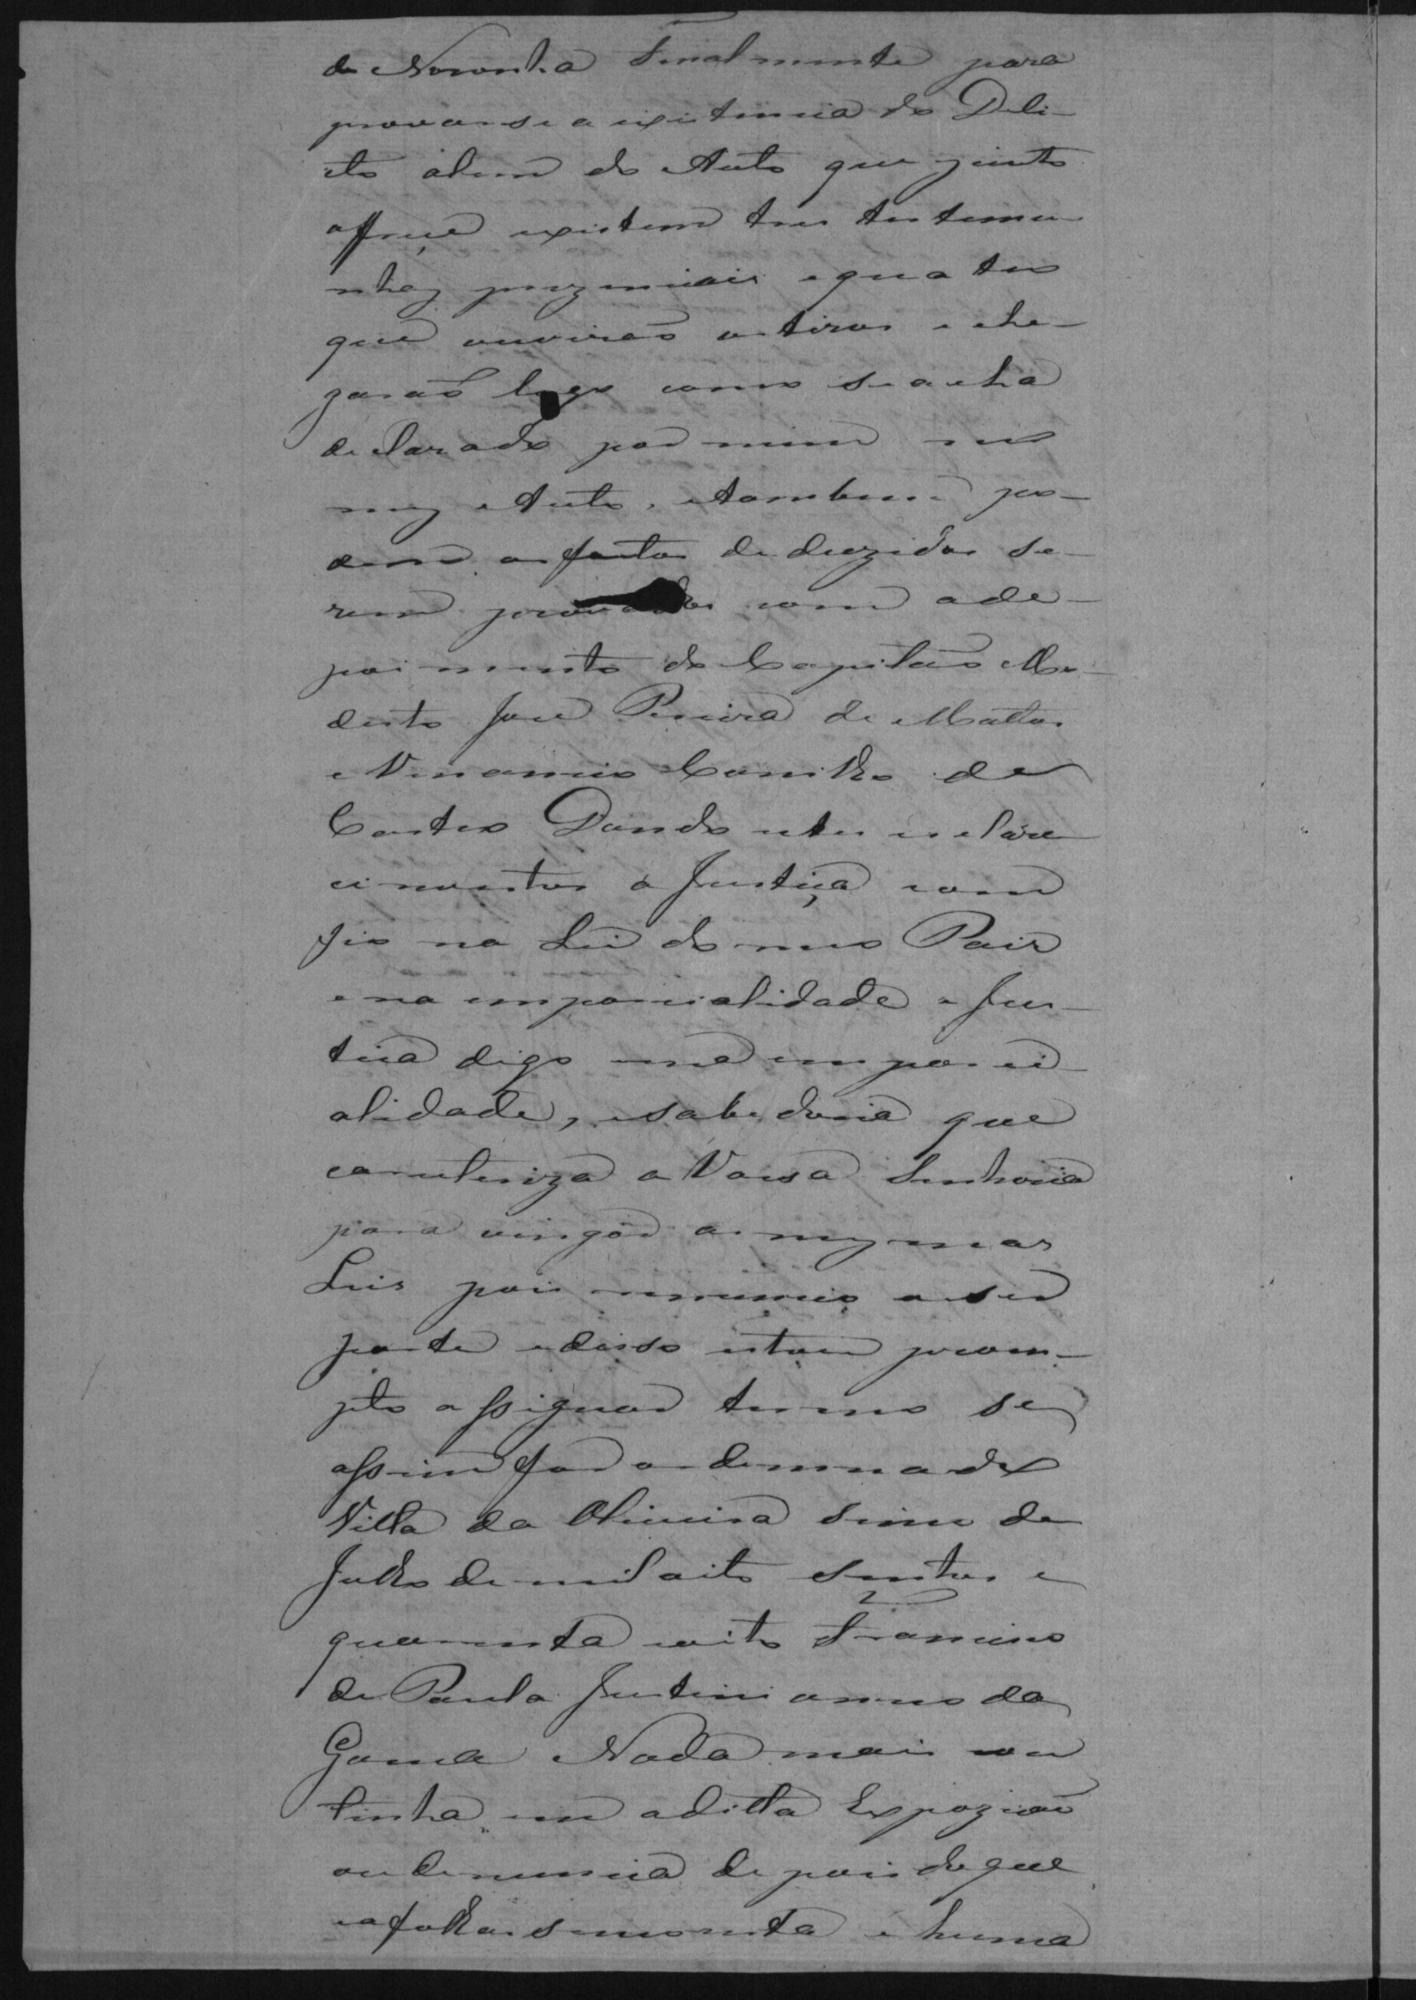 de Noronha Finalmente para
provar-se a existencia do Deli-
cto alem do Auto que junto
offreço existem tres testemu-
nhaz prezenciais e quatro
que ouvirão os tiros e che-
garaõ logo como se acha
declarado por mim no
mez Auto, e tambem po-
dem os factos deduzidos se-
rem provados com o de-
poimento do Capitão Mo-
desto Jose Pereira de Mattos
e Venancio Coriolho de
Castro Dando estes esclare-
cimentos a Justiça con-
fio na Lei do meo Pais
e na imparcialidade e Jus-
tiça digo e na imparci-
alidade, e sabedoria que
caracteriza a Vossa Senhoria
para vingar as mezmas
Leis pois renuncio a ser
parte e disso estou prom-
pto assignar termo se
assim for ordennado
Villa da Oliveira sinco de
Julho de mil oito sentos e
quarenta e oito Francisco
de Paula Justinianno da
Gama Nada mais con
tinha em a ditta Expozição
ou denuncia depois do que
e a folhas secenta e huma